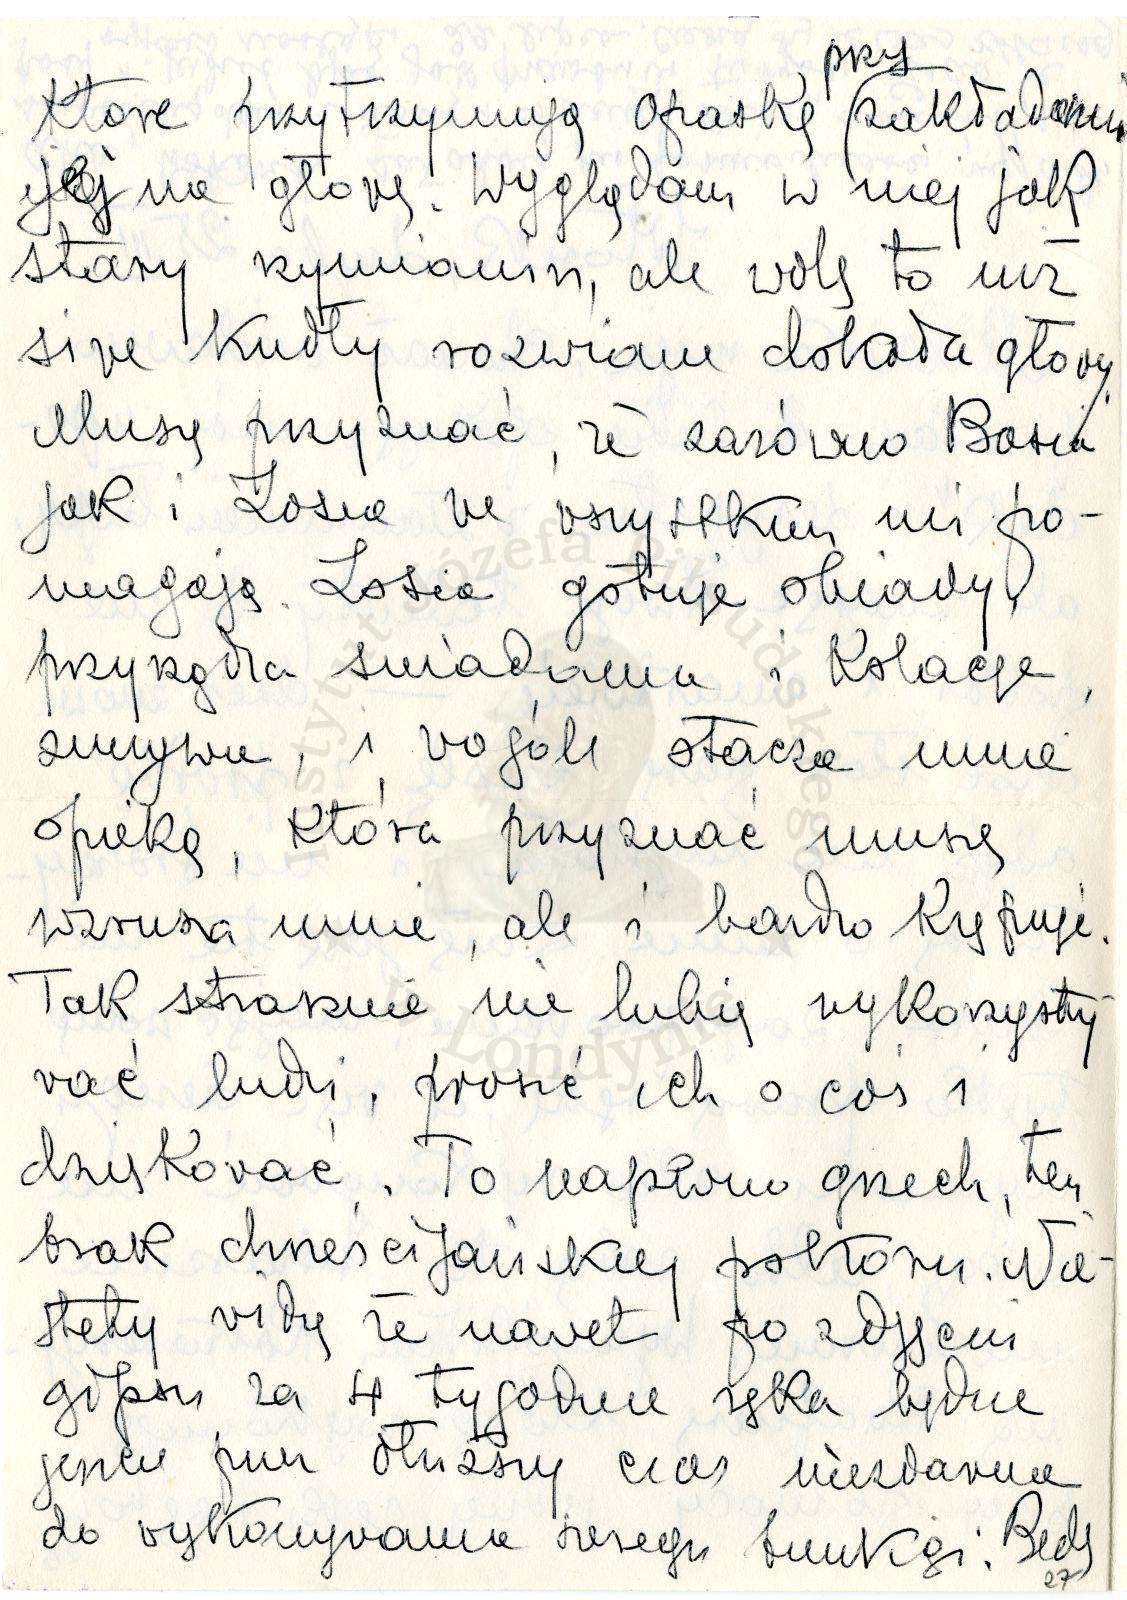 przy
które przytrzymują opaskę (zakładaniu
jej na głowę. Wyglądam w niej jak
stary rzymianin, ale wolę to niż
siwe kudły rozwiane dokoła głowy.
Muszę przyznać, że zarówno Basia
jak i Zosia we wszystkim mi po-
magają. Zosia gotuje obiady,
przyrządza śniadania i kolacje,
zmywa, i wogóle otacza mnie
opieką, która przyznać muszę
wzrusza mnie, ale i bardzo krępuje.
Tak strasznie nie lubię wykorzysty-
wać ludzi, prosić ich o coś i
dziękować. To napewno grzech, ten
brak chrześcijańskiej pokory. Nie-
stety widzę że nawet po zdjęciu
gipsu za 4 tygodnie ręka będzie
jeszcze przez dłuższy czas niezdarna
do wykonywania swego funkcji. Będę
27
Instytut Józefa Piłsudskiego
w Londynie